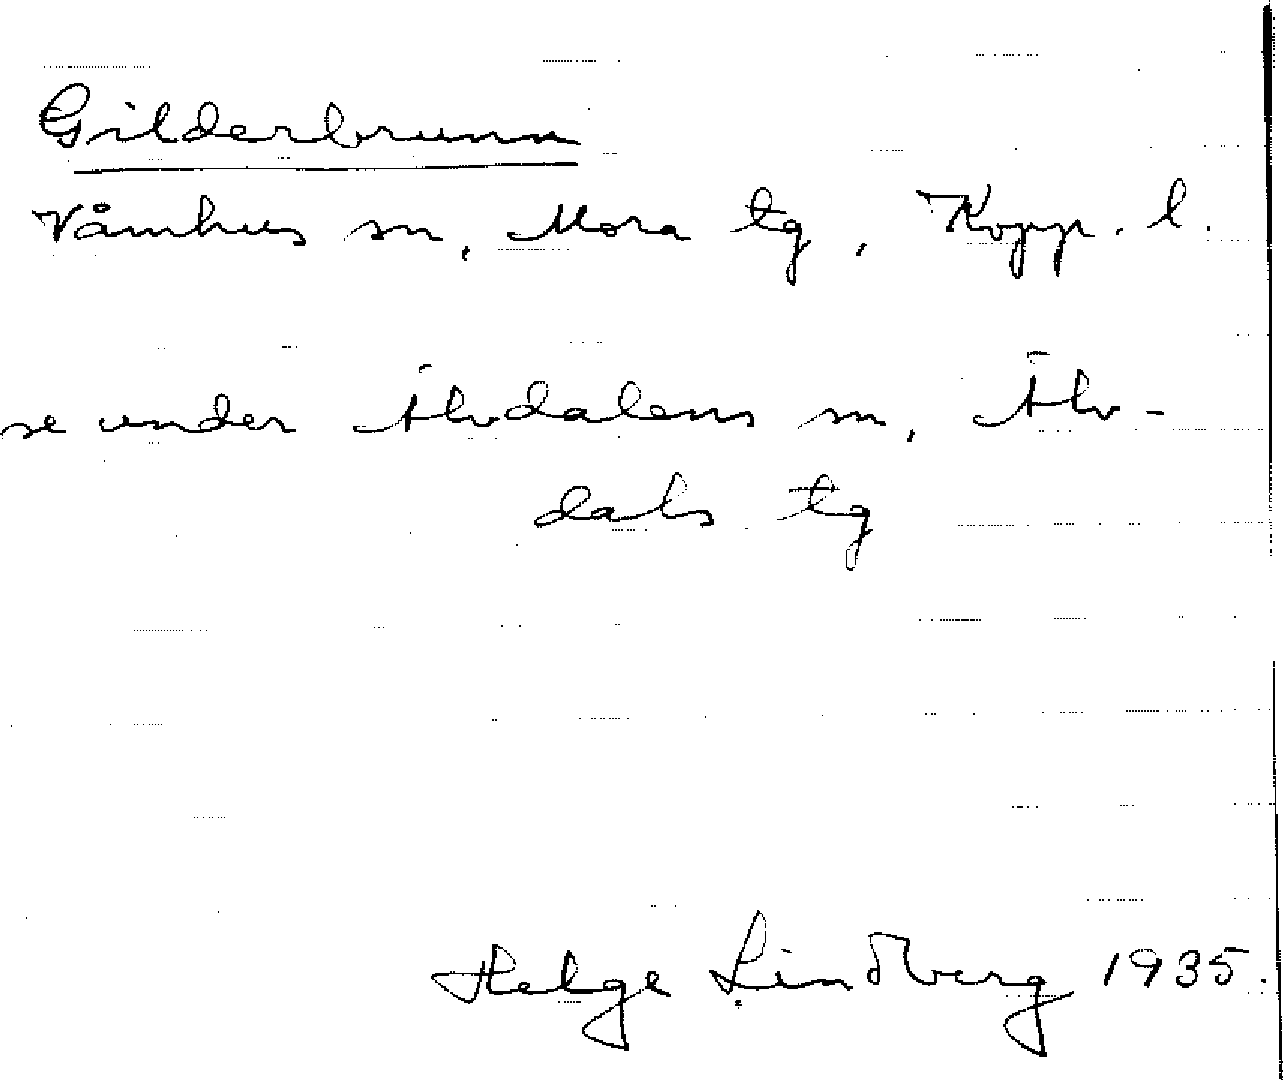 Gilderbrunn
Våmhus sn, Mora tg, Kopp. l.
se under Älvdalens sn, Älv-
dals tg
Helge Lindberg 1935.